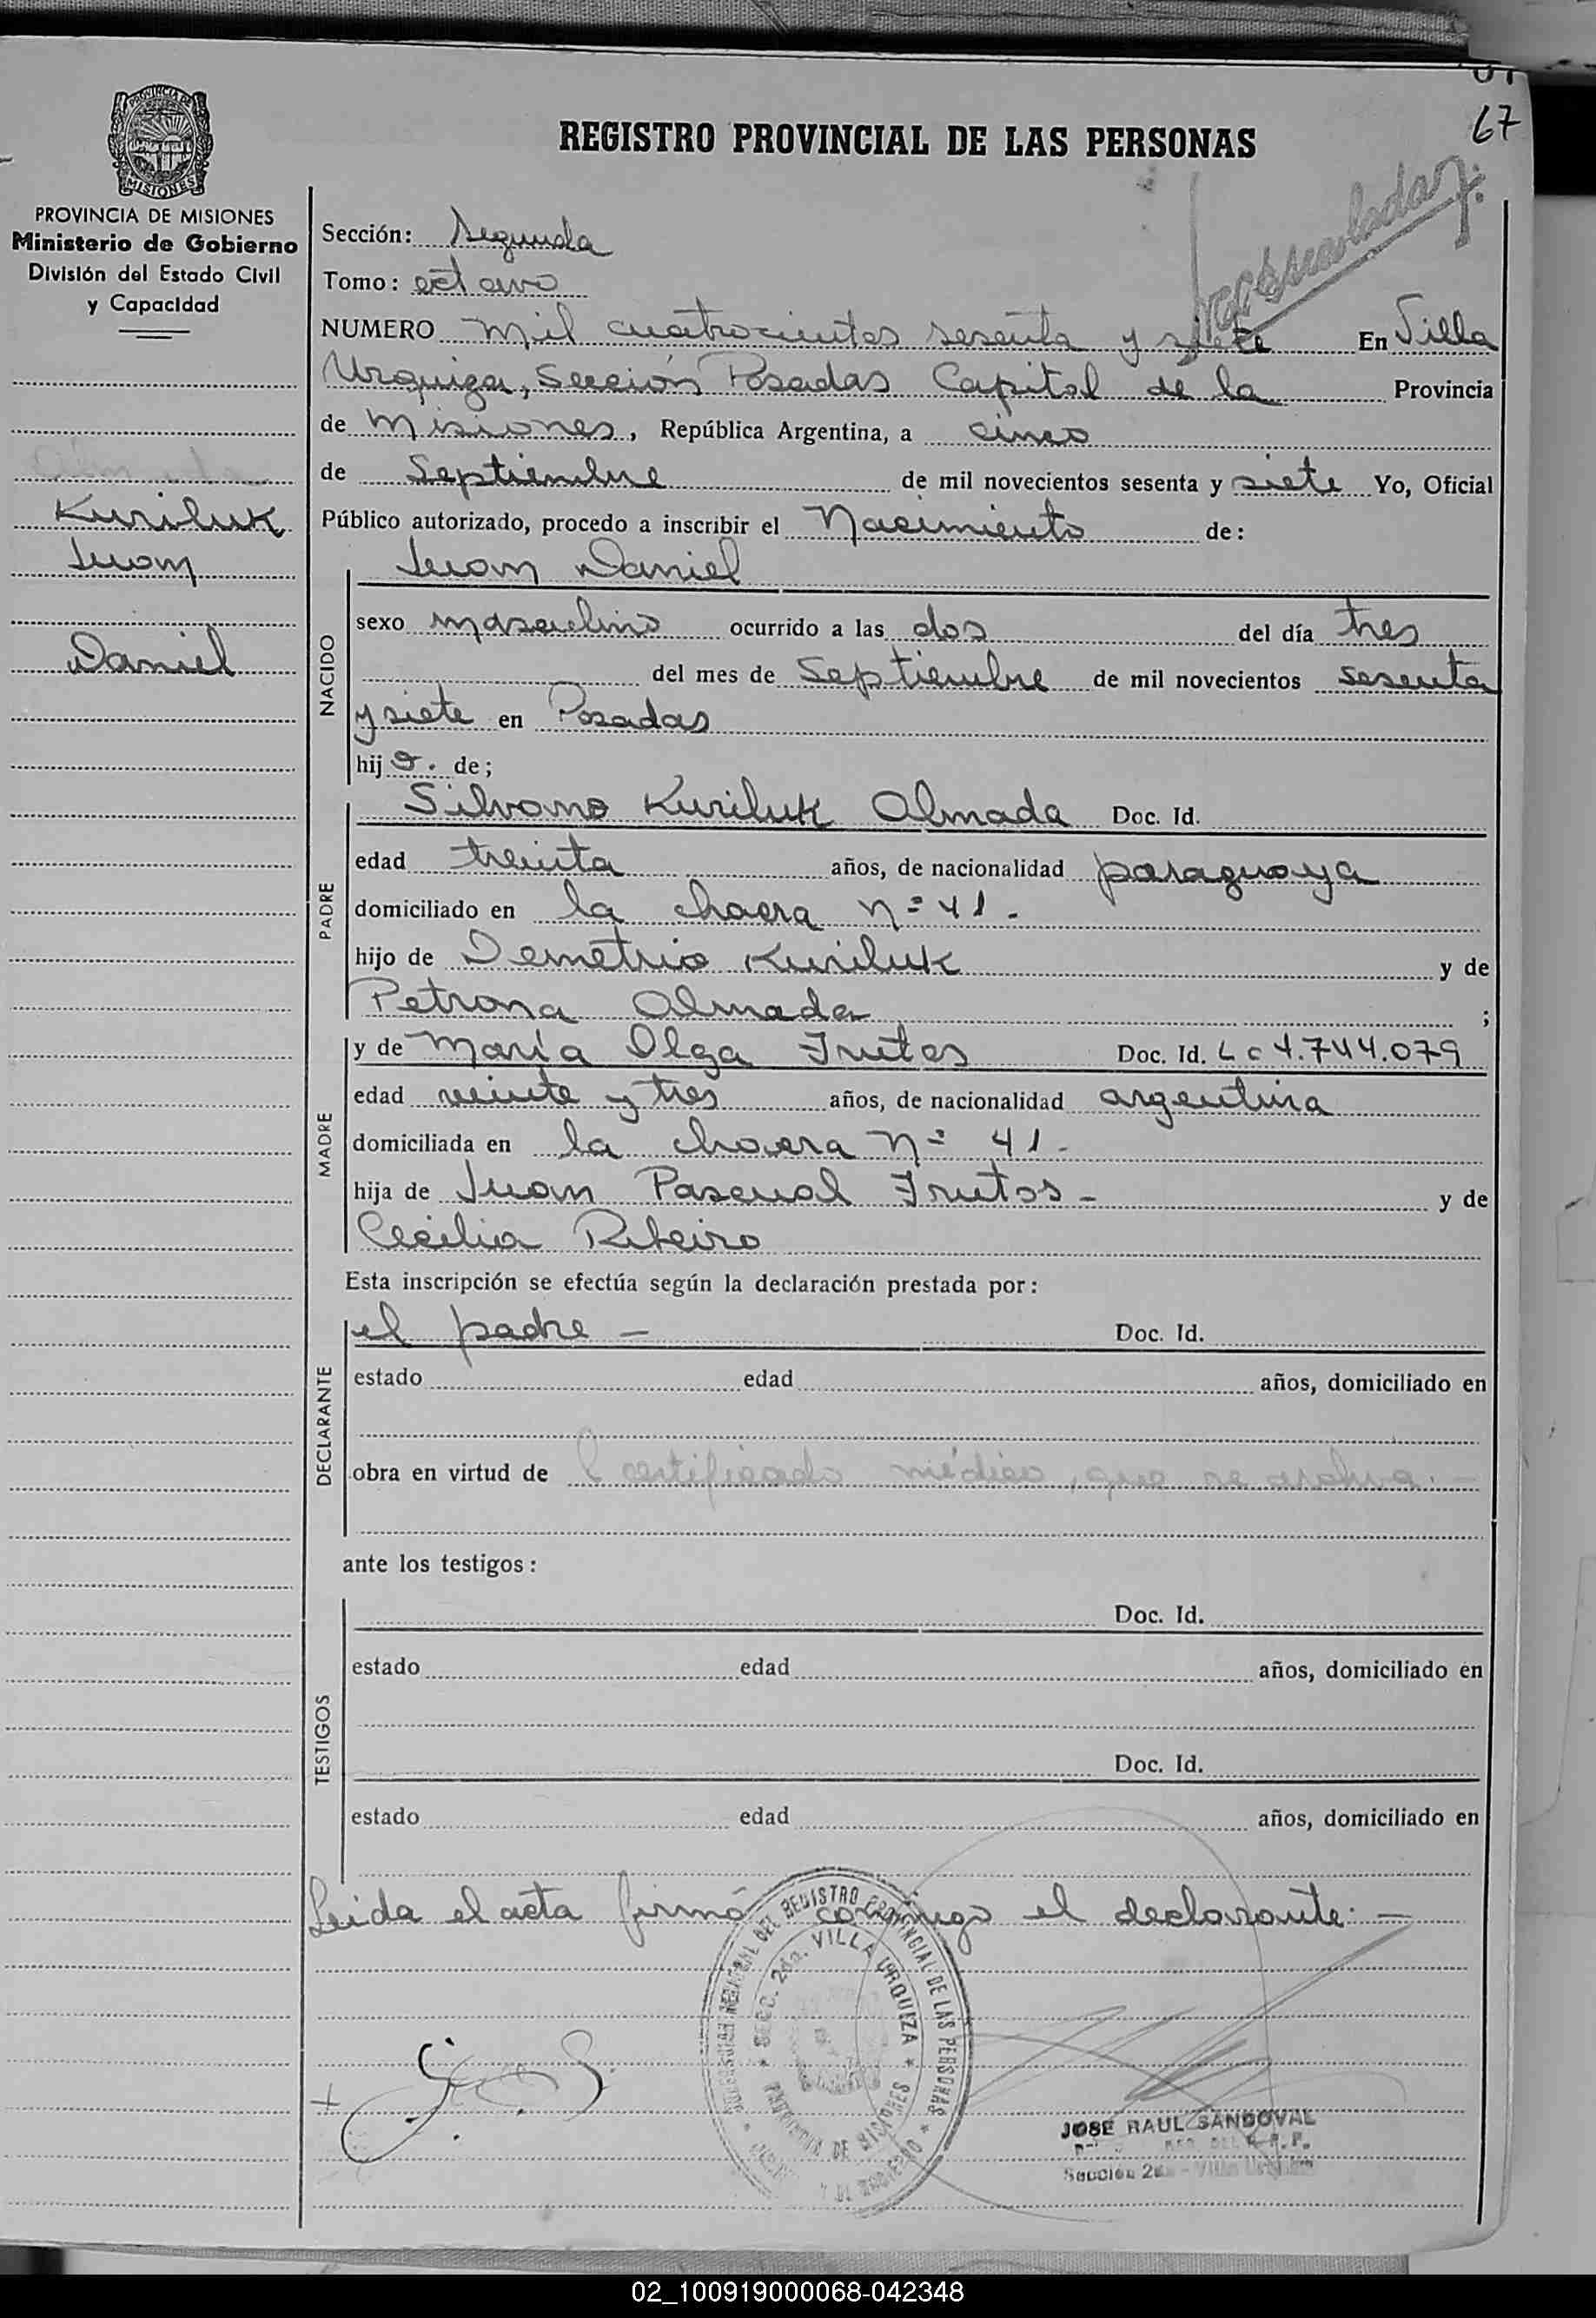 67
PROVINCIA DE
MISIONES
PROVINCIA DE MISIONES
Ministerio de Gobierno
División del Estado Civil
y Capacidad
Kuriluk
Juan
Daniel
REGISTRO PROVINCIAL DE LAS PERSONAS
Sección: Segunda
Tomo: octavo
NUMERO mil cuatrocientos sesenta y siete En Villa
Urquiza, Sección Posadas Capital de la Provincia
de Misiones, República Argentina, a cinco
de Septiembre de mil novecientos sesenta y siete Yo, Oficial
Público autorizado, procedo a inscribir el Nacimiento de:
Juan Daniel
NACIDO
sexo masculino ocurrido a las dos del día tres
del mes de Septiembre de mil novecientos sesenta
y siete en Posadas
hijo. de;
PADRE
Silvano Kuriluk Almada Doc. Id.
edad treinta años, de nacionalidad paraguaya
domiciliado en la chacra n° 41.
hijo de Demetrio Kuriluk y de
Petrona Almada ;
MADRE
y de María Olga Frutos Doc. Id. L c 4.744.079
edad veinte y tres años, de nacionalidad argentina
domiciliada en la chacra n° 41-
hija de Juan Pascual Frutos - y de
Cecilia Ribeiro
Esta inscripción se efectúa según la declaración prestada por:
DECLARANTE
el padre - Doc. Id.
estado edad años, domiciliado en
obra en virtud de certificado médico, que se archiva. -
ante los testigos:
TESTIGOS
Doc. Id.
estado edad años, domiciliado en
Doc. Id.
estado edad años, domiciliado en
Leida el acta firmó conmigo el declarante. -
DEL REGISTRO PROVINCIAL DE LAS PERSONAS
SECC. 2da. VILLA URQUIZA
PROVINCIA DE MISIONES
JOSE RAUL SANDOVAL
Sección 2da - Villa Urquiza
02_100919000068-042348